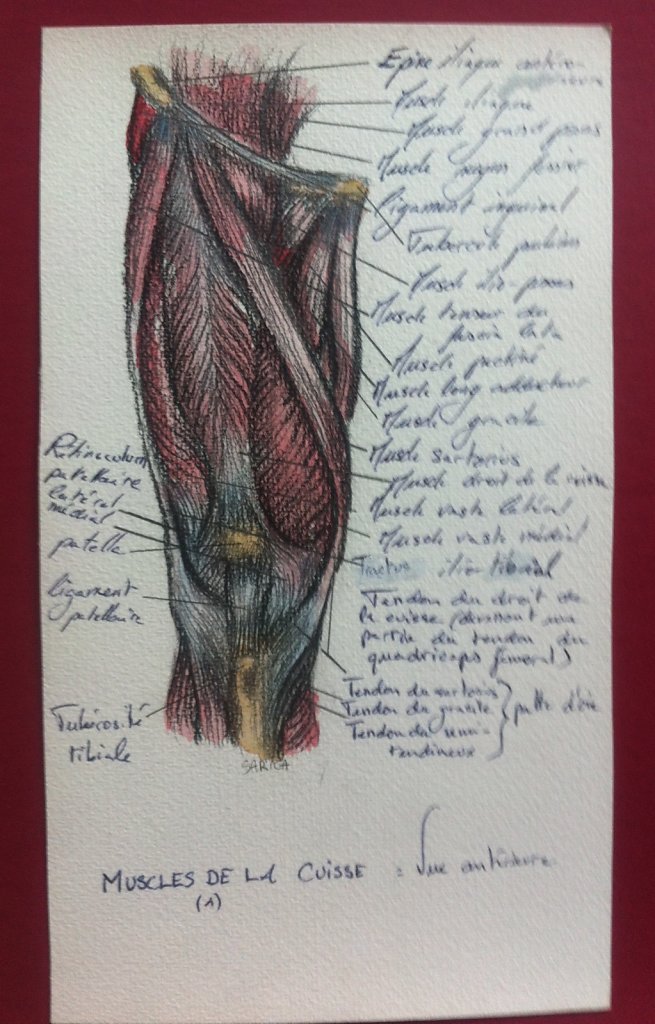 Epine iliaque antéro-
Muscle iliaque
Muscle grand psoas
Muscle moyen fessier
ligament inguinal
Tubercule pubien
Muscle ilio-psoas
Muscle tenseur du
fascia lata
Muscle pectiné
Muscle long adducteur
Muscle gracile
Muscle sartorius
Muscle droit de la cuisse
Muscle vaste latéral
Muscle vaste médial
Tractus ilio-tibial
Tendon du droit de
la cuisse (formant une
partie du tendon du
quadriceps fémoral)
Tendon du sartorius
Tendon du gracile
Tendon du semi-
tendineux
patte d'oie
Rétinaculum
patellaire
latéral
médial
patella
ligament
patellaire
Tubérosité
tibiale
SARICA
MUSCLES DE LA CUISSE : Vue antérieure
(1)